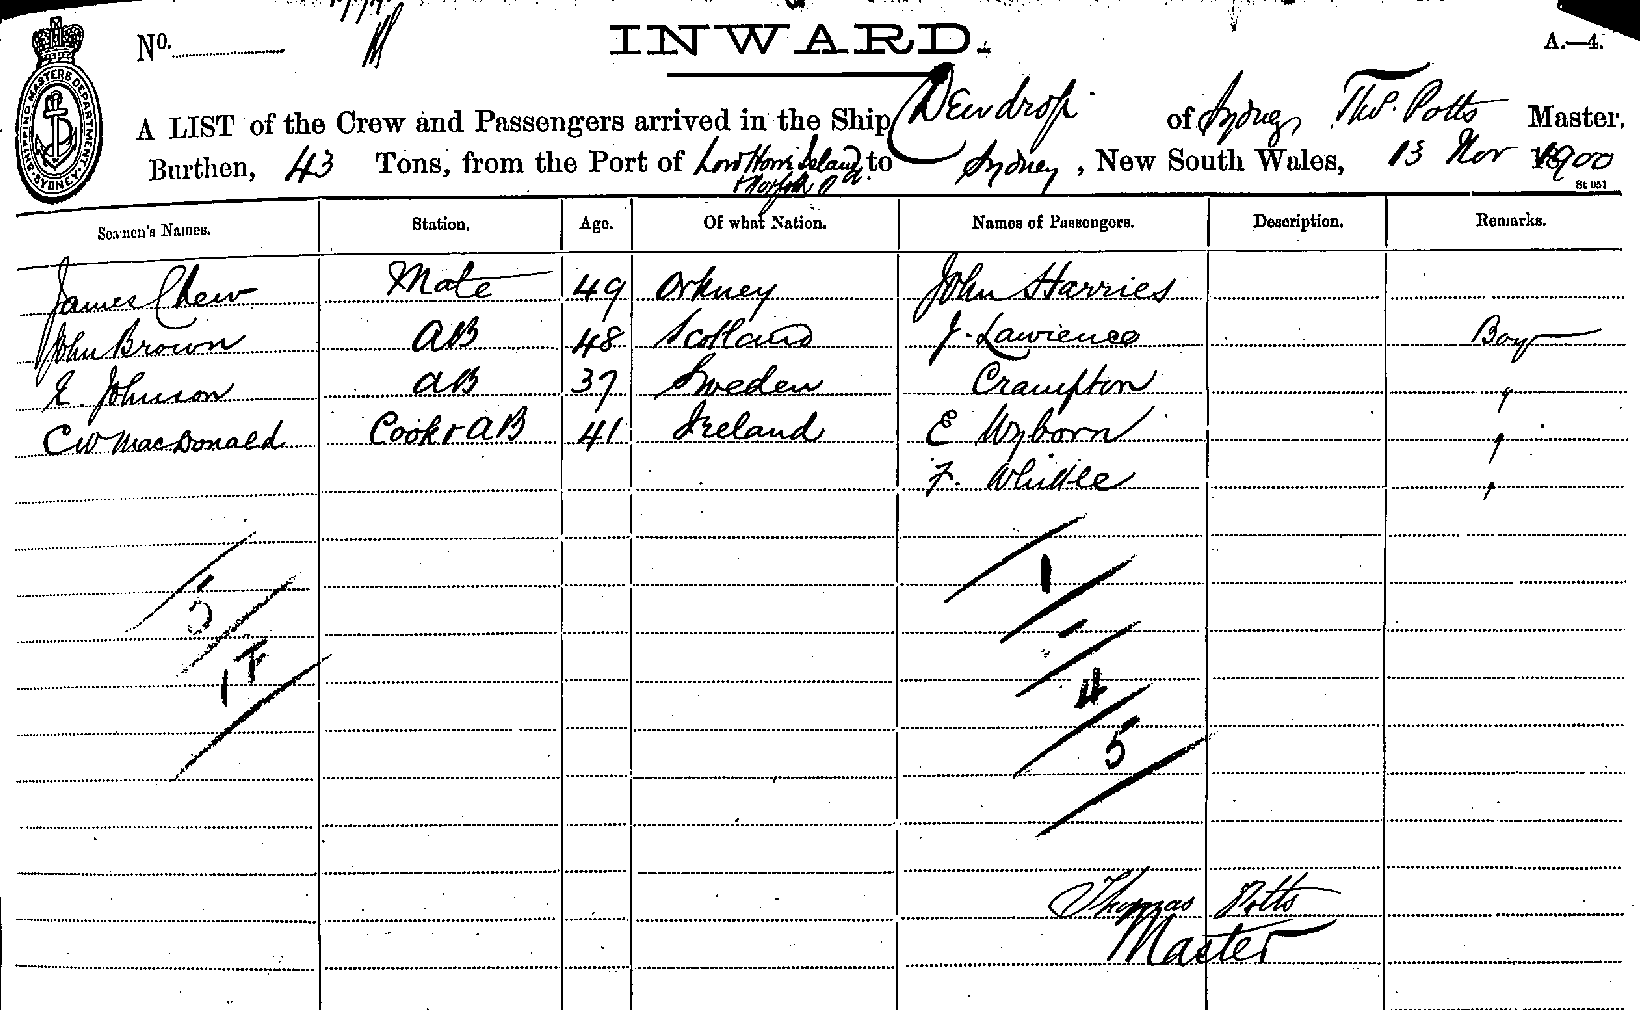 No.
INWARD.
A.—4.
SHIPPING MASTERS DEPARTMENT
SYDNEY
A LIST of the Crew and Passengers arrived in the Ship Dewdrop of Sydney, Thos. Potts Master,
Burthen, 43 Tons, from the Port of Lord Howe Island to Sydney, New South Wales, 13 Nov 1900
& Norfolk
Seamen's Names. Station. Age. Of what Nation. Names of Passengers. Description. Remarks.
James Chew Mate 49 Orkney John Harries
John Brown AB 48 Scotland J. Lawrence Boy
E. Johnson AB 37 Sweden Crampton "
CW MacDonald Cook & AB 41 Ireland E Wyborn "
F. Whittle "
5
1
1
4
5
Thomas Potts
Master